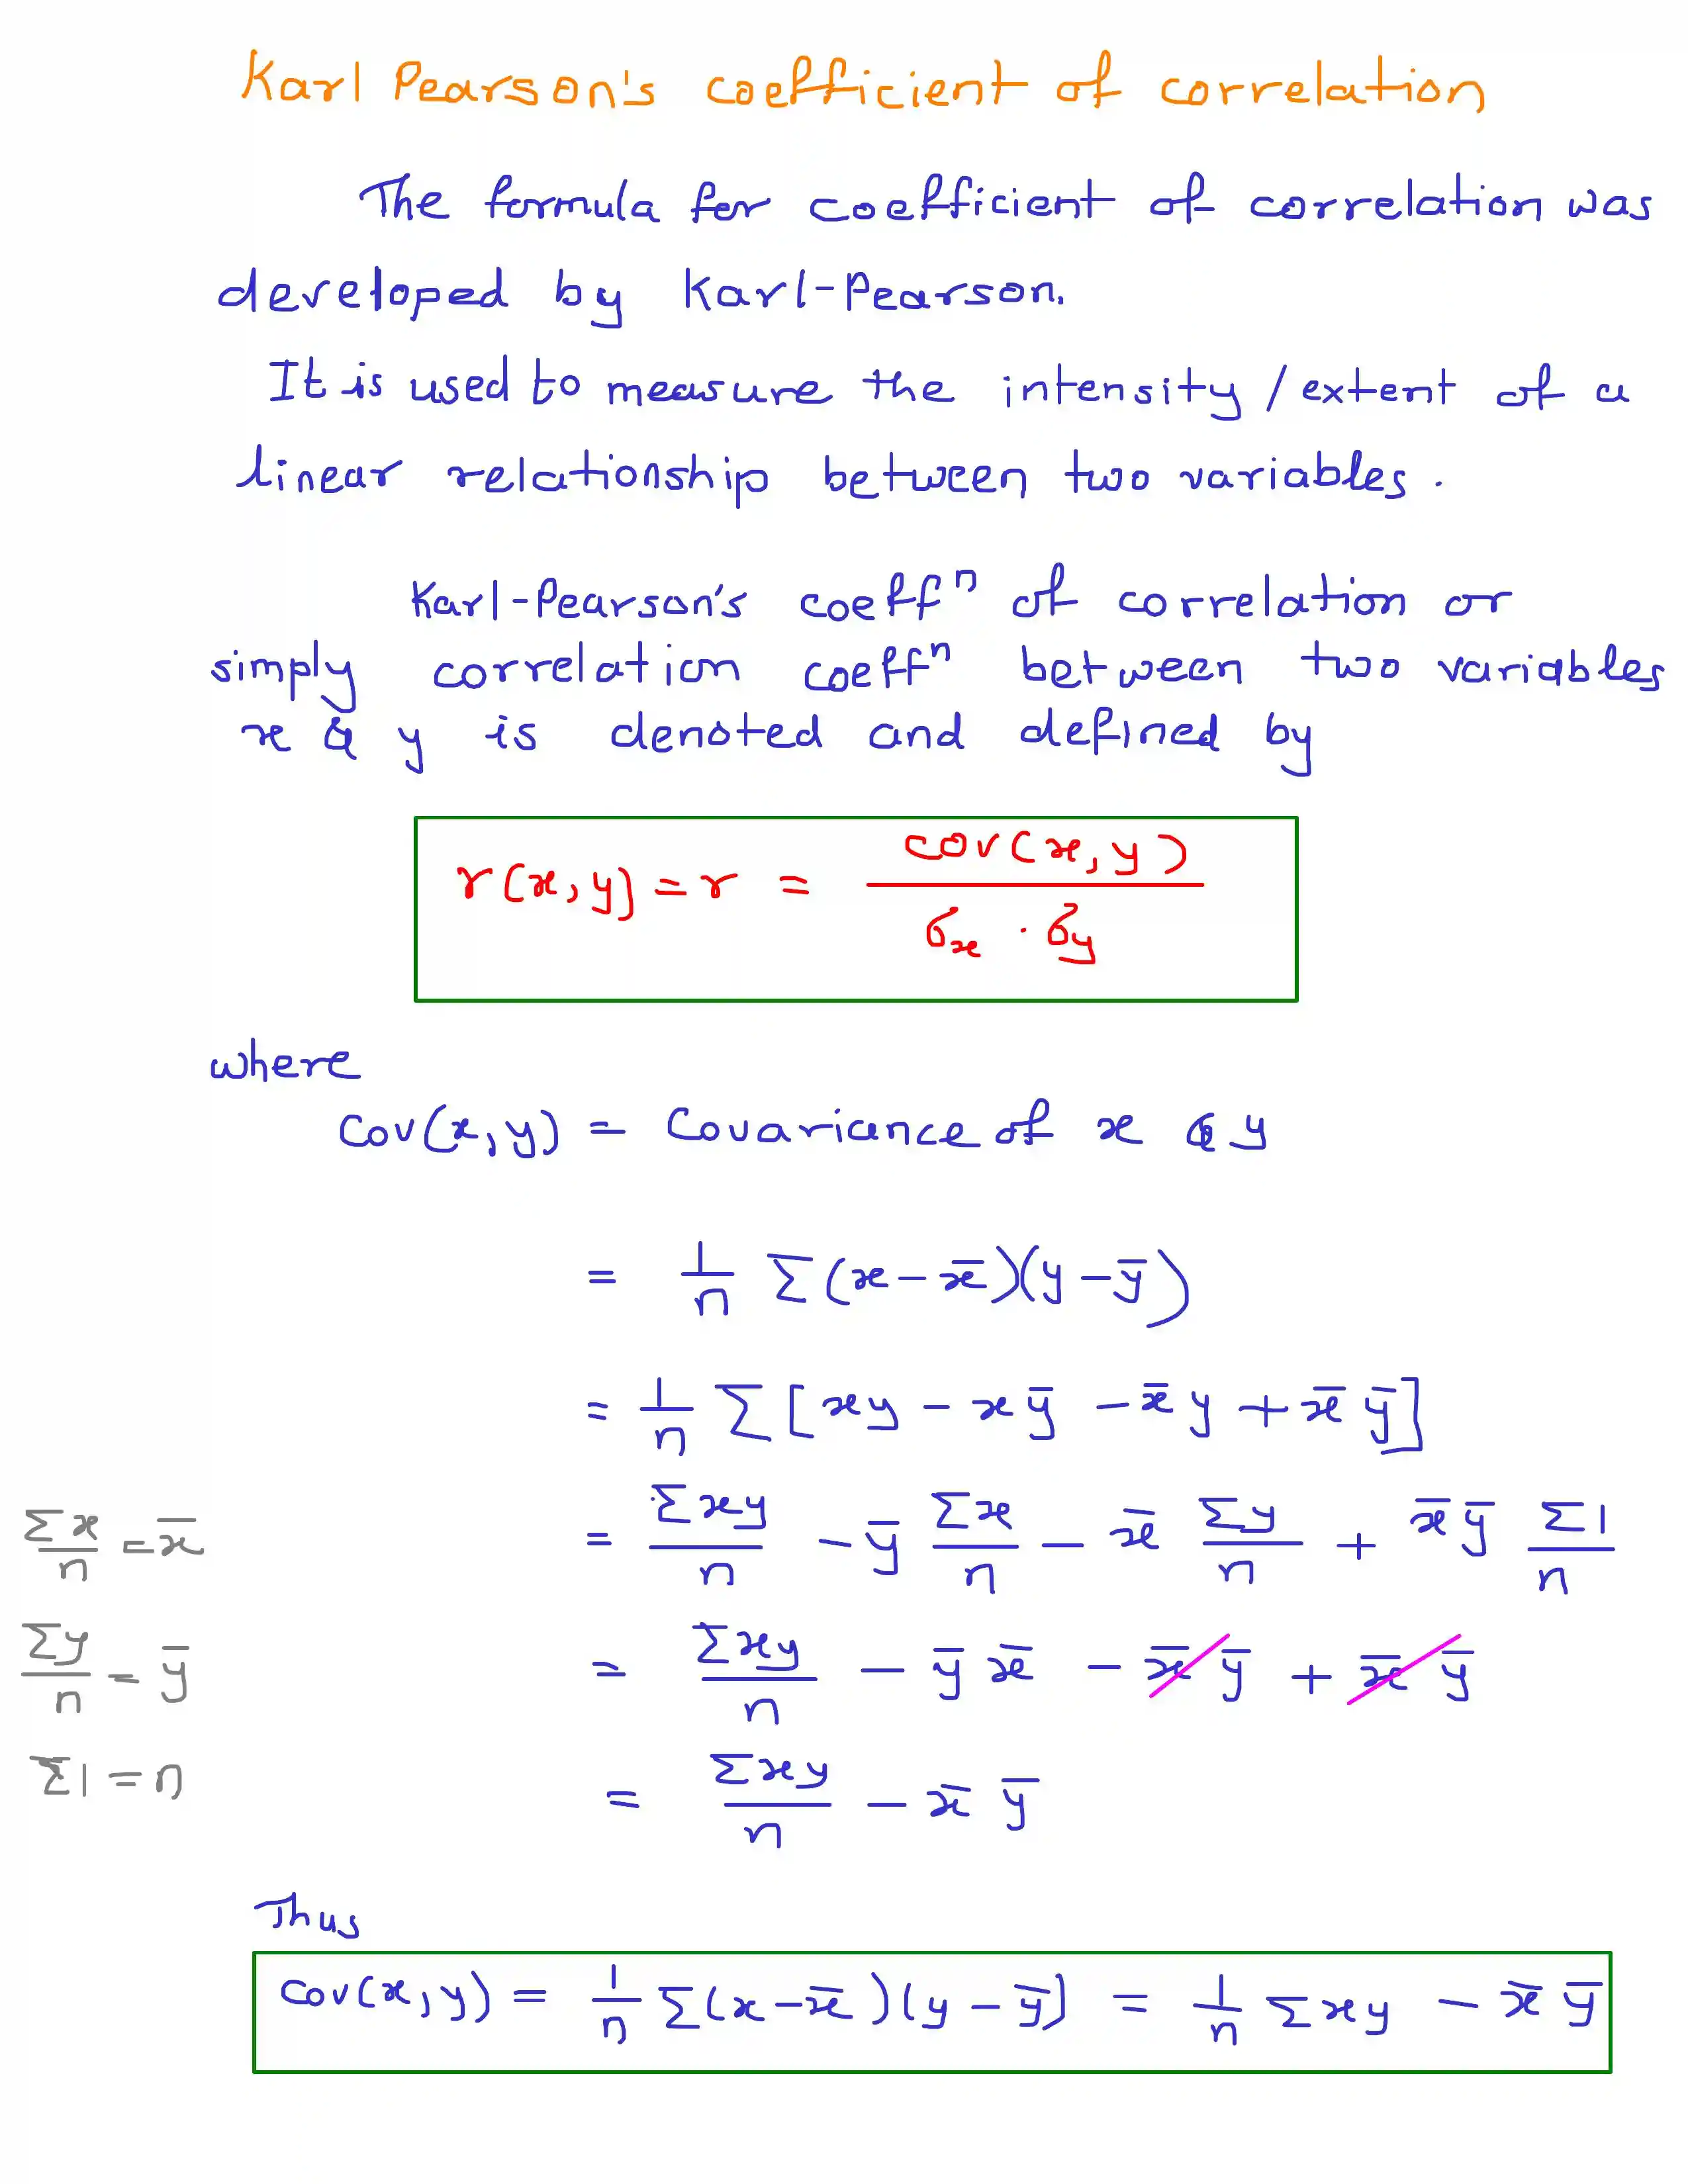 Karl Pearson's coefficient of correlation
The formula for coefficient of correlation was
developed by Karl-Pearson.
It is used to measure the intensity / extent of a
linear relationship between two variables.
Karl-Pearson's coeffⁿ of correlation or
simply correlation coeffⁿ between two variables
x & y is denoted and defined by
r(x,y) = r = cov(x,y) / σx · σy
where
Cov(x,y) = Covariance of x & y
= 1/n Σ(x-x̄)(y-ȳ)
= 1/n Σ[xy - xȳ - x̄y + x̄ȳ]
Σx/n = x̄
= Σxy/n - ȳ Σx/n - x̄ Σy/n + x̄ȳ Σ1/n
Σy/n = ȳ
= Σxy/n - ȳx̄ - x̄ȳ + x̄ȳ
Σ1 = n
= Σxy/n - x̄ȳ
Thus
Cov(x,y) = 1/n Σ(x-x̄)(y-ȳ) = 1/n Σxy - x̄ȳ